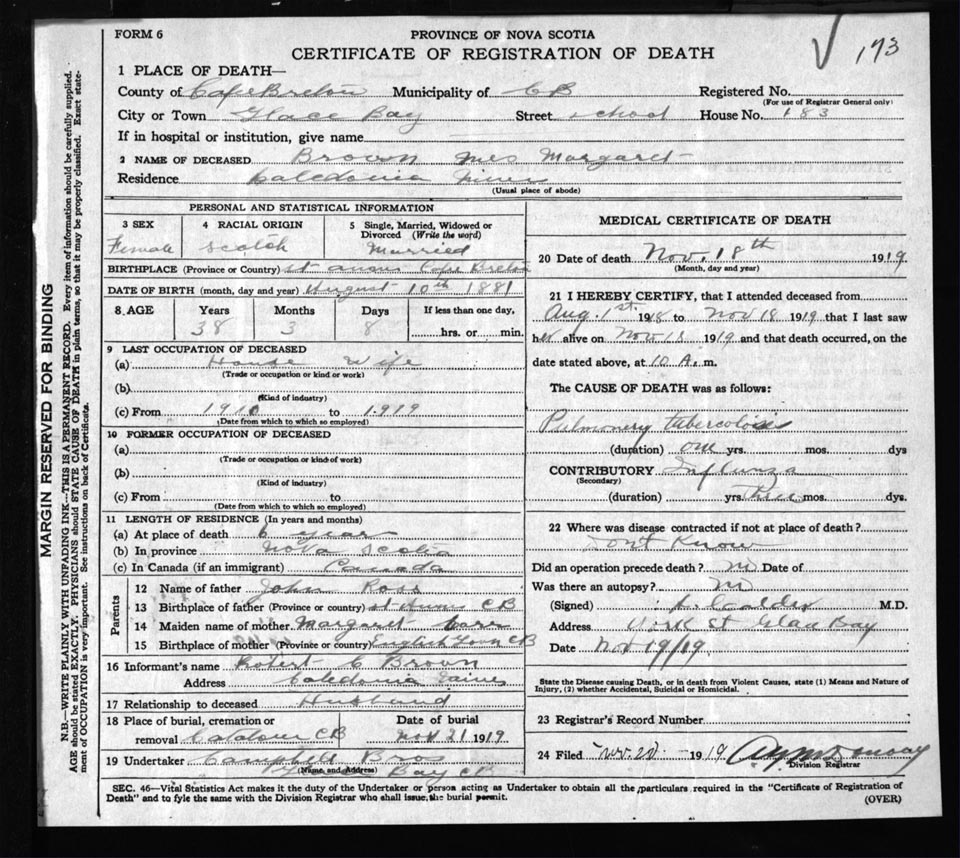 FORM 6
PROVINCE OF NOVA SCOTIA
173
CERTIFICATE OF REGISTRATION OF DEATH
1 PLACE OF DEATH—
County of Cape Breton Municipality of CB Registered No.
(For use of Registrar General only)
City or Town Glace Bay Street school House No. 183
If in hospital or institution, give name
2 NAME OF DECEASED Brown Mrs Margaret
Residence Caledonia Mines
(Usual place of abode)
PERSONAL AND STATISTICAL INFORMATION
3 SEX 4 RACIAL ORIGIN 5 Single, Married, Widowed or Divorced (Write the word)
Female Scotch Married
BIRTHPLACE (Province or Country) Cape Breton
DATE OF BIRTH (month, day and year) August 10th 1881
8 AGE Years Months Days If less than one day,
38 3 8 hrs. or min.
9 LAST OCCUPATION OF DECEASED
(a) House Wife
(Trade or occupation or kind or work)
(b)
(Kind of industry)
(c) From 1910 to 1919
(Date from which to which so employed)
10 FORMER OCCUPATION OF DECEASED
(a)
(Trade or occupation or kind of work)
(b)
(Kind of industry)
(c) From to
(Date from which to which so employed)
11 LENGTH OF RESIDENCE (In years and months)
(a) At place of death 6 years
(b) In province Nova Scotia
(c) In Canada (if an immigrant) Canada
Parents
12 Name of father John Ross
13 Birthplace of father (Province or country) CB
14 Maiden name of mother Margaret Carr
15 Birthplace of mother (Province or country) English Town CB
16 Informant's name Robert C Brown
Address Caledonia Mines
17 Relationship to deceased Husband
18 Place of burial, cremation or removal CB
Date of burial
Nov 21 1919
19 Undertaker Campbell Bros
(Name and Address) Bay CB
MEDICAL CERTIFICATE OF DEATH
20 Date of death Nov. 18th 1919
(Month, day and year)
21 I HEREBY CERTIFY, that I attended deceased from
Aug. 1st 1918 to Nov 18 1919 that I last saw
her alive on Nov 18 1919 and that death occurred, on the
date stated above, at 10 A. m.
The CAUSE OF DEATH was as follows:
Pulmonery tubercolosis
(duration) one yrs. mos. dys
CONTRIBUTORY Influenza
(Secondary)
(duration) yrs. Three mos. dys.
22 Where was disease contracted if not at place of death?
Dont Know
Did an operation precede death? no Date of
Was there an autopsy? no
(Signed) Calder M.D.
Address York St Glace Bay
Date Nov 19/19.
State the Disease causing Death, or in death from Violent Causes, state (1) Means and Nature of
Injury, (2) whether Accidental, Suicidal or Homicidal.
23 Registrar's Record Number
24 Filed Nov. 20 1919
Division Registrar
SEC. 46—Vital Statistics Act makes it the duty of the Undertaker or person acting as Undertaker to obtain all the particulars required in the "Certificate of Registration of
Death" and to fyle the same with the Division Registrar who shall issue the burial permit.
(OVER)
MARGIN RESERVED FOR BINDING
N.B.—WRITE PLAINLY WITH UNFADING INK—THIS IS A PERMANENT RECORD. Every item of information should be carefully supplied.
AGE should be stated EXACTLY. PHYSICIANS should STATE CAUSE OF DEATH in plain terms, so that it may be properly classified. Exact state-
ment of OCCUPATION is very important. See instructions on back of Certificate.